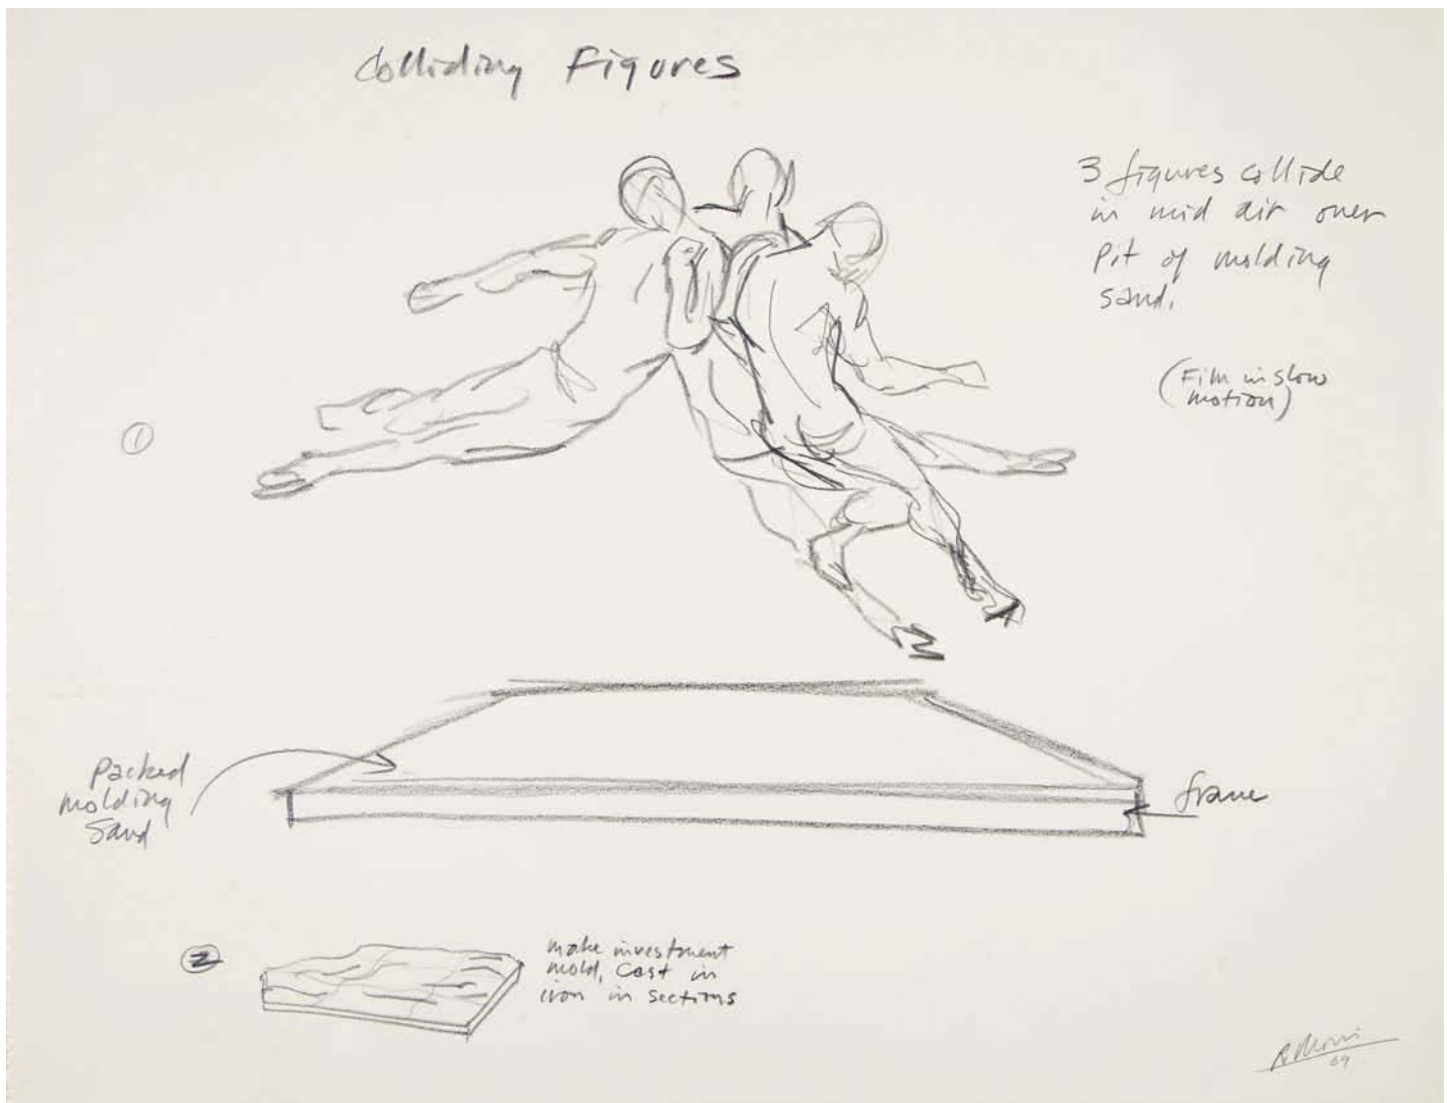 Colliding Figures
3 figures collide
in mid air over
pit of molding
sand.
(Film in slow
motion)
1
packed
molding
sand
frame
2
make investment
mold, cast in
iron in sections
R. Morris
69